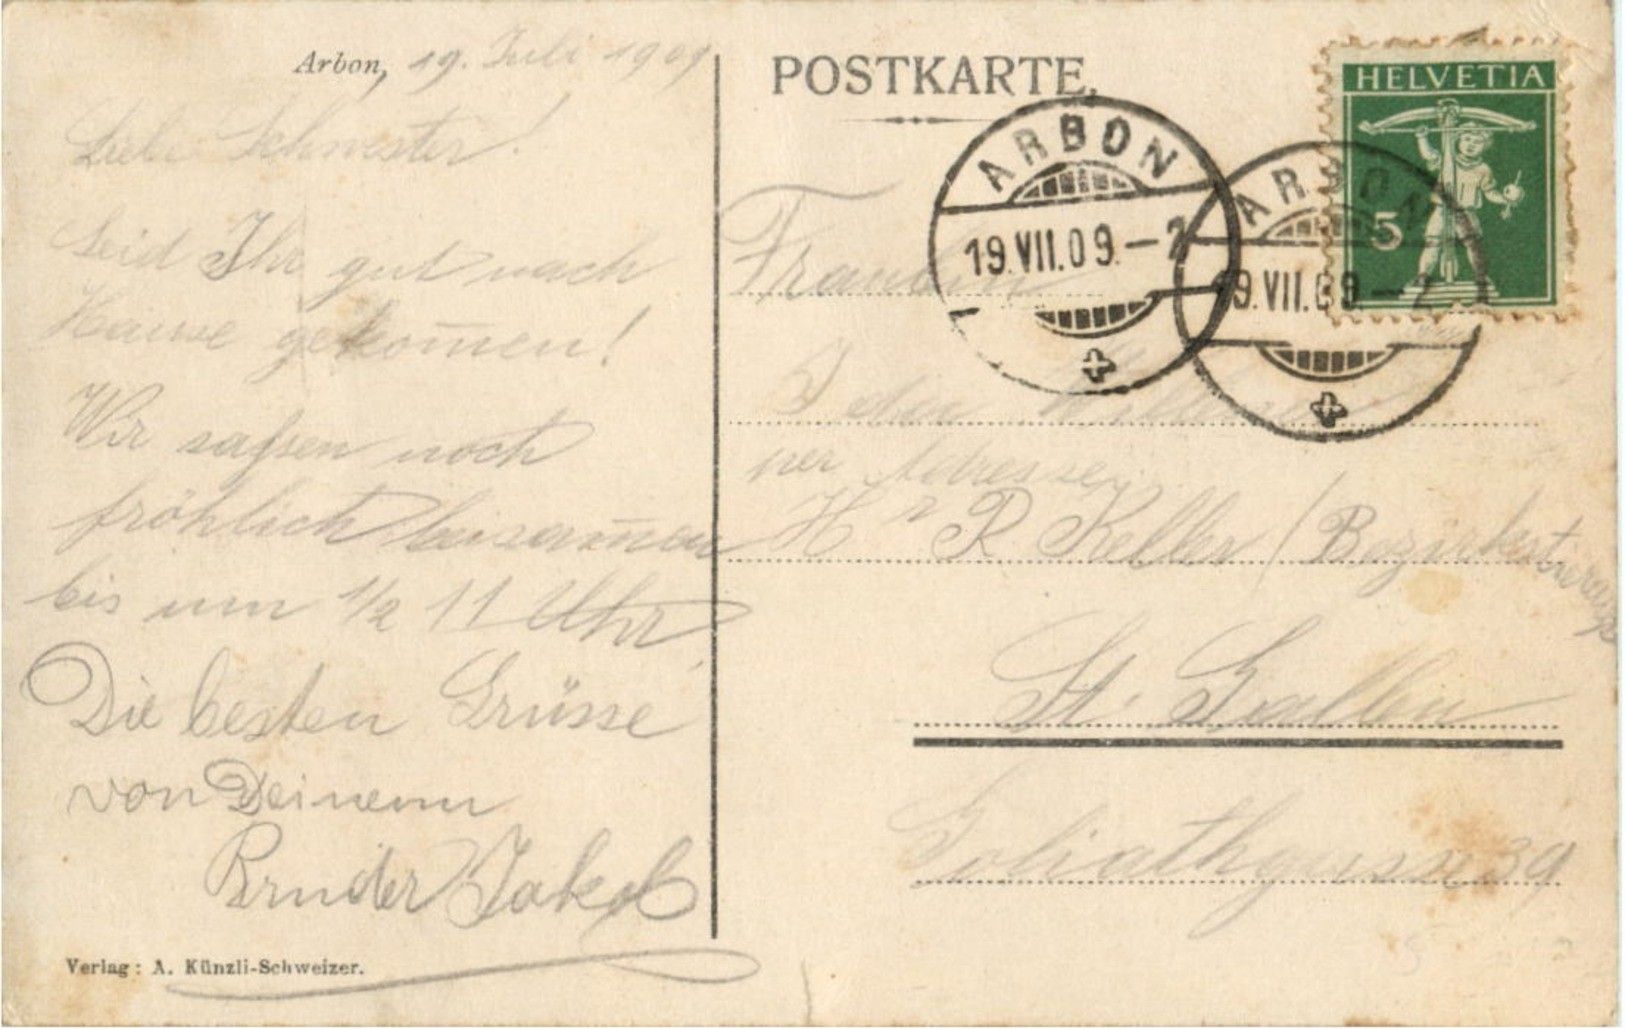 Arbon, 19. Juli 1909
Liebe Schwester!
Seid Ihr gut nach
Hause gekom̄en!
Wir saßsen noch
fröhlich beisam̄en
bis um 1/2 11 Uhr.
Die besten Grüsse
von Deinem
Bruder Jakob
Verlag: A. Künzli-Schweizer.
POSTKARTE.
HELVETIA
5
ARBON
19.VII.09.–2
ARBON
19.VII.09–2
Fraulein
per Adresse
Hr R. Keller (Bezirkstierarzt
St. Gallen
Goliathgasse 39